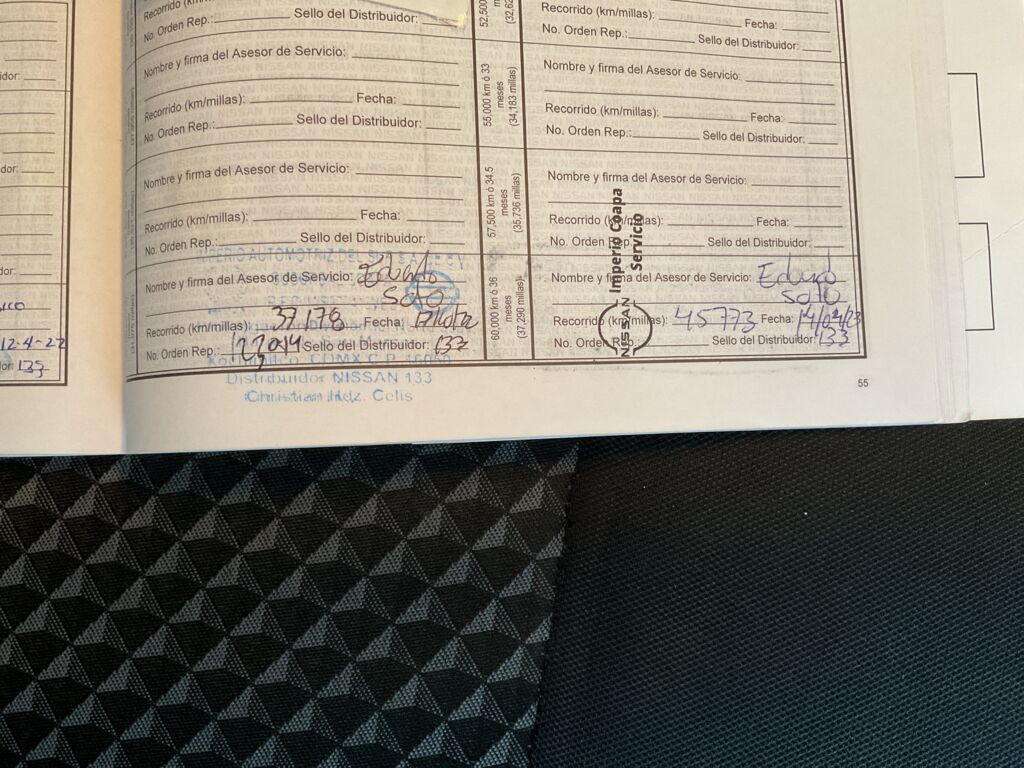 Recorrido
No. Orden Rep.: Sello del Distribuidor:
Nombre y firma del Asesor de Servicio:
Recorrido (km/millas): Fecha:
No. Orden Rep.: Sello del Distribuidor:
Nombre y firma del Asesor de Servicio:
Recorrido (km/millas): Fecha:
No. Orden Rep.: Sello del Distribuidor:
IMPERIO AUTOMOTRIZ DEL
Nombre y firma del Asesor de Servicio:
Soto
Recorrido (km/millas): 37178 Fecha:
No. Orden Rep.: Sello del Distribuidor:
CDMX C.P.
Distribuidor NISSAN 133
Christian Hdz. Celis
52,500
55,000 km ó 33
meses
(34,183 millas)
57,500 km ó 34.5
meses
(35,736 millas)
60,000 km ó 36
meses
(37,290 millas)
Recorrido (km/millas): Fecha:
No. Orden Rep.: Sello del Distribuidor:
Nombre y firma del Asesor de Servicio:
Recorrido (km/millas): Fecha:
No. Orden Rep.: Sello del Distribuidor:
Nombre y firma del Asesor de Servicio:
Recorrido (km/millas): Fecha:
No. Orden Rep.: Sello del Distribuidor:
Nombre y firma del Asesor de Servicio:
Soto
Recorrido (km/millas): 45773 Fecha:
No. Orden Rep.: Sello del Distribuidor: 133
Imperio Coapa
Servicio
NISSAN
55
12-4-22